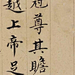 冠尊其瞻
越上帝足